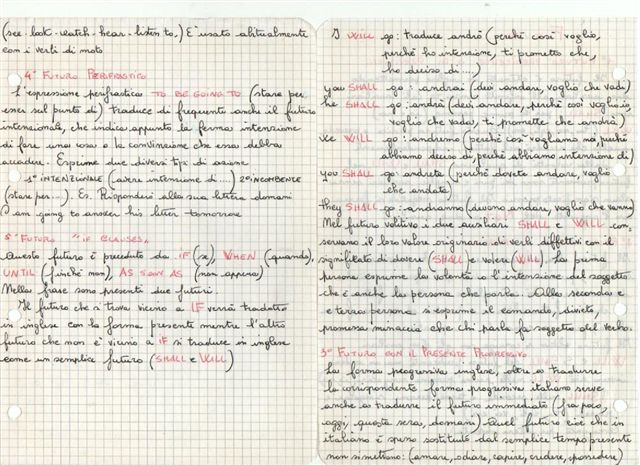 (see-look-watch-hear-listen to.) È usato abitualmente
con i verbi di moto
4° FUTURO PERIFRASTICO
L'espressione perifrastica TO BE GOING TO (stare per
esser sul punto di) traduce di frequente anche il futuro
intenzionale, che indica appunto la ferma intenzione
di fare una cosa o la convinzione che essa debba
accadere. Esprime due diversi tipi di azione
1° INTENZIONALE (avere intenzione di ....) 2° INCOMBENTE
(stare per...). Es. Risponderò alla sua lettera domani
I am going to answer his letter tomorrow
5° FUTURO "IF CLAUSES"
Questo futuro è preceduto da IF (se), WHEN (quando),
UNTIL (finché non), AS SOON AS (non appena)
Nella frase sono presenti due futuri.
Il futuro che si trova vicino a IF verrà tradotto
in inglese con la forma presente mentre l'altro
futuro che non è vicino a IF si traduce in inglese
come un semplice futuro (SHALL e WILL)
I WILL go: traduce andrò (perché così voglio,
perché ho intenzione, ti prometto che,
ho deciso di....)
you SHALL go: andrai (devi andare, voglio che vada)
he SHALL go: andrà (devi andare, perché così voglio io,
voglio che vada, ti prometto che andrà)
we WILL go: andremo (perché così vogliamo noi, perché
abbiamo deciso di, perché abbiamo intenzione di)
you SHALL go: andrete (perché dovete andare, voglio
che andate)
they SHALL go: andranno (devono andare, voglio che vanno)
Nel futuro volitivo i due ausiliari SHALL e WILL con-
servano il loro valore originario di verbi diffettivi con il
significato di dovere (SHALL) e volere (WILL). La prima
persona esprime la volontà o l'intenzione del soggetto
che è anche la persona che parla. Alla seconda e
e terza persona si esprime il comando, divieto,
promessa minaccia che chi parla fa soggetto del verbo.
3° FUTURO CON IL PRESENTE PROGRESSIVO
La forma progressiva inglese, oltre a tradurre
la corrispondente forma progressiva italiana serve
anche a tradurre il futuro immediato (fra poco,
oggi, questa sera, domani) Quel futuro cioè che in
italiano è spesso sostituito dal semplice tempo presente
non si mettono: (amare, odiare, capire, credere, possedere)